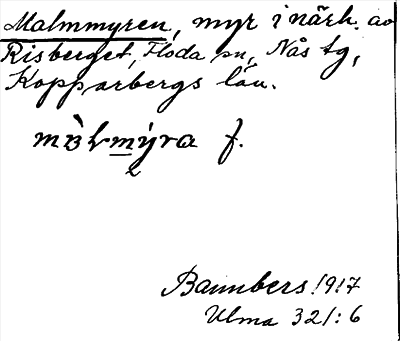 Malmmyren, myr i närh. av
Risberget, Floda sn, Nås tg,
Kopparbergs län.
f.
1917
Ulma 321:6